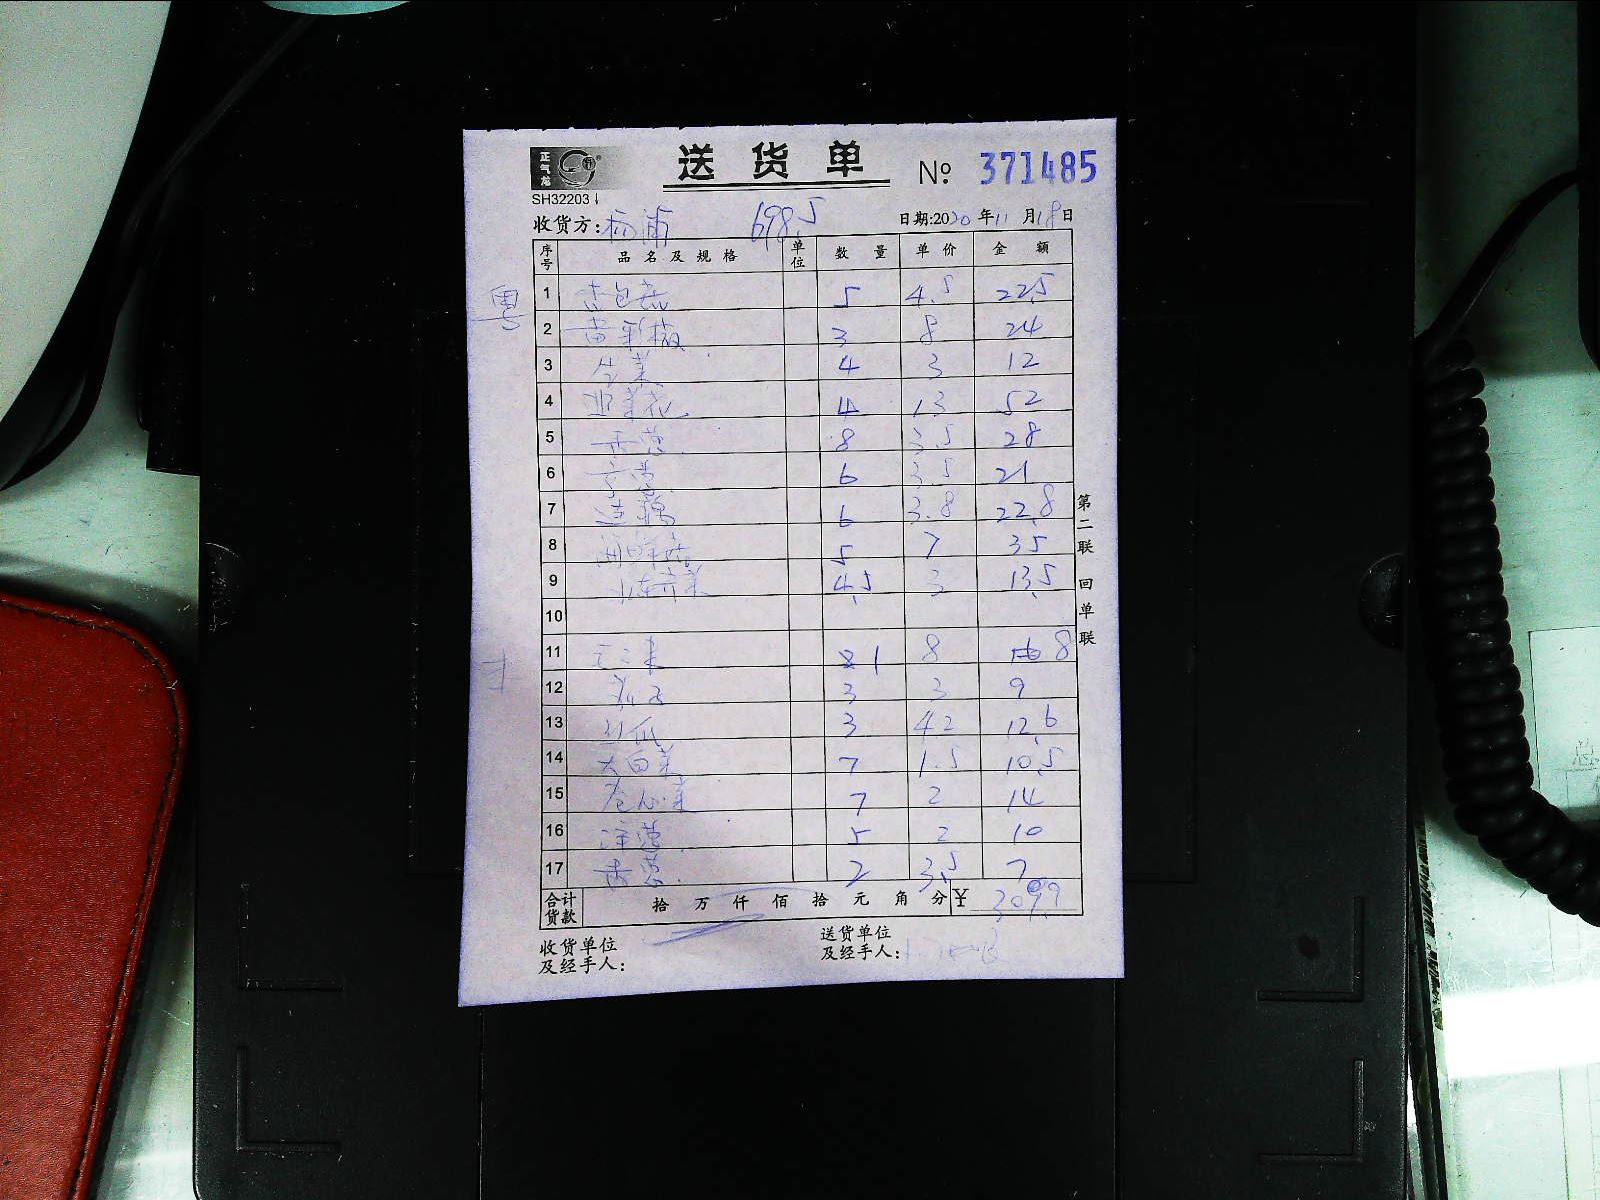 正气龙
送货单 № 371485
SH32203
收货方: 杨浦 698.5 日期:2020年11月18日
序号 品名及规格 单位 数量 单价 金额
粤
1 杏包菇 5 4.5 22.5
2 黄彩椒 3 8 24
3 生菜 4 3 12
4 西兰花 4 13 52
5 香葱 8 3.5 28
6 京葱 6 3.5 21
7 莲藕 6 3.8 22.8
8 鲜菇 5 7 35
9 水东芥菜 4.5 3 13.5
10
11 1 8 8
12 3 3 9
13 丝瓜 3 4.2 12.6
14 大白菜 7 1.5 10.5
15 卷心菜 7 2 14
16 洋葱 5 2 10
17 香葱 2 3.5 7
合计货款 拾 万 仟 佰 拾 元 角 分 ¥ 309.9
收货单位及经手人:
送货单位及经手人:
第二联 回单联